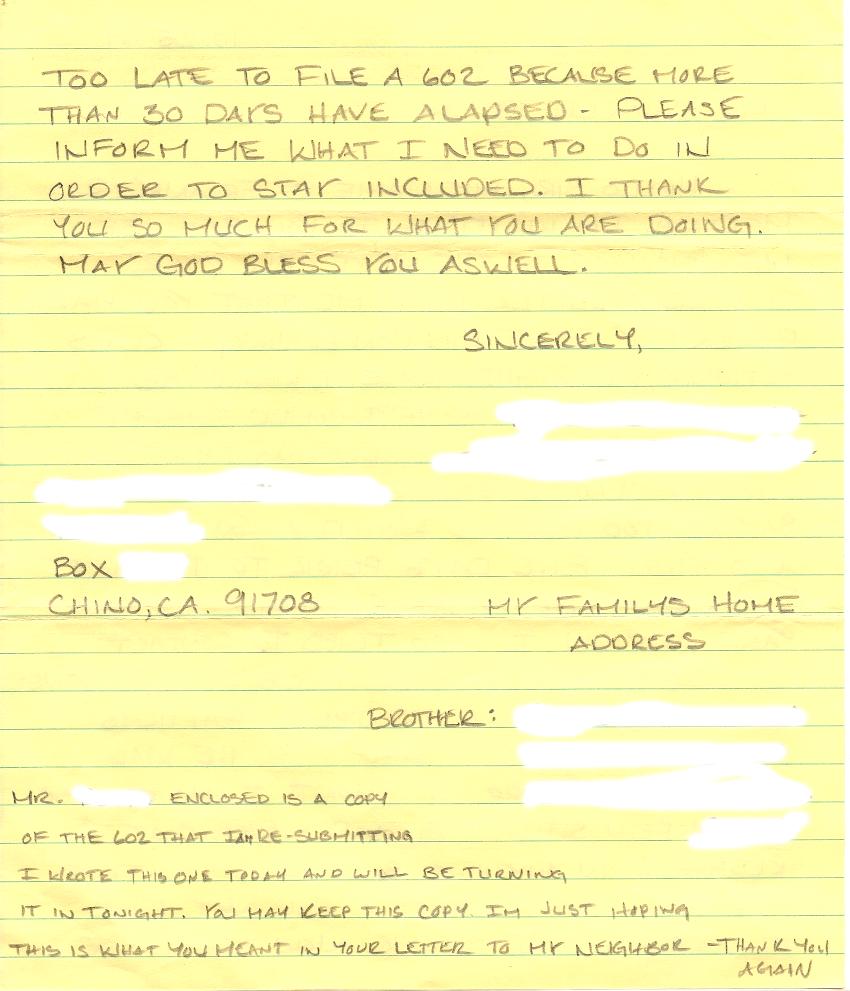 TOO LATE TO FILE A 602 BECAUSE MORE
THAN 30 DAYS HAVE ALAPSED - PLEASE
INFORM ME WHAT I NEED TO DO IN
ORDER TO STAY INCLUDED. I THANK
YOU SO MUCH FOR WHAT YOU ARE DOING.
MAY GOD BLESS YOU ASWELL.
SINCERELY,
BOX
CHINO, CA. 91708
MY FAMILYS HOME
ADDRESS
BROTHER:
MR. ENCLOSED IS A COPY
OF THE 602 THAT IAM RE-SUBMITTING
I WROTE THIS ONE TODAY AND WILL BE TURNING
IT IN TONIGHT. YOU MAY KEEP THIS COPY. IM JUST HOPING
THIS IS WHAT YOU MEANT IN YOUR LETTER TO MY NEIGHBOR -THANK YOU
AGAIN